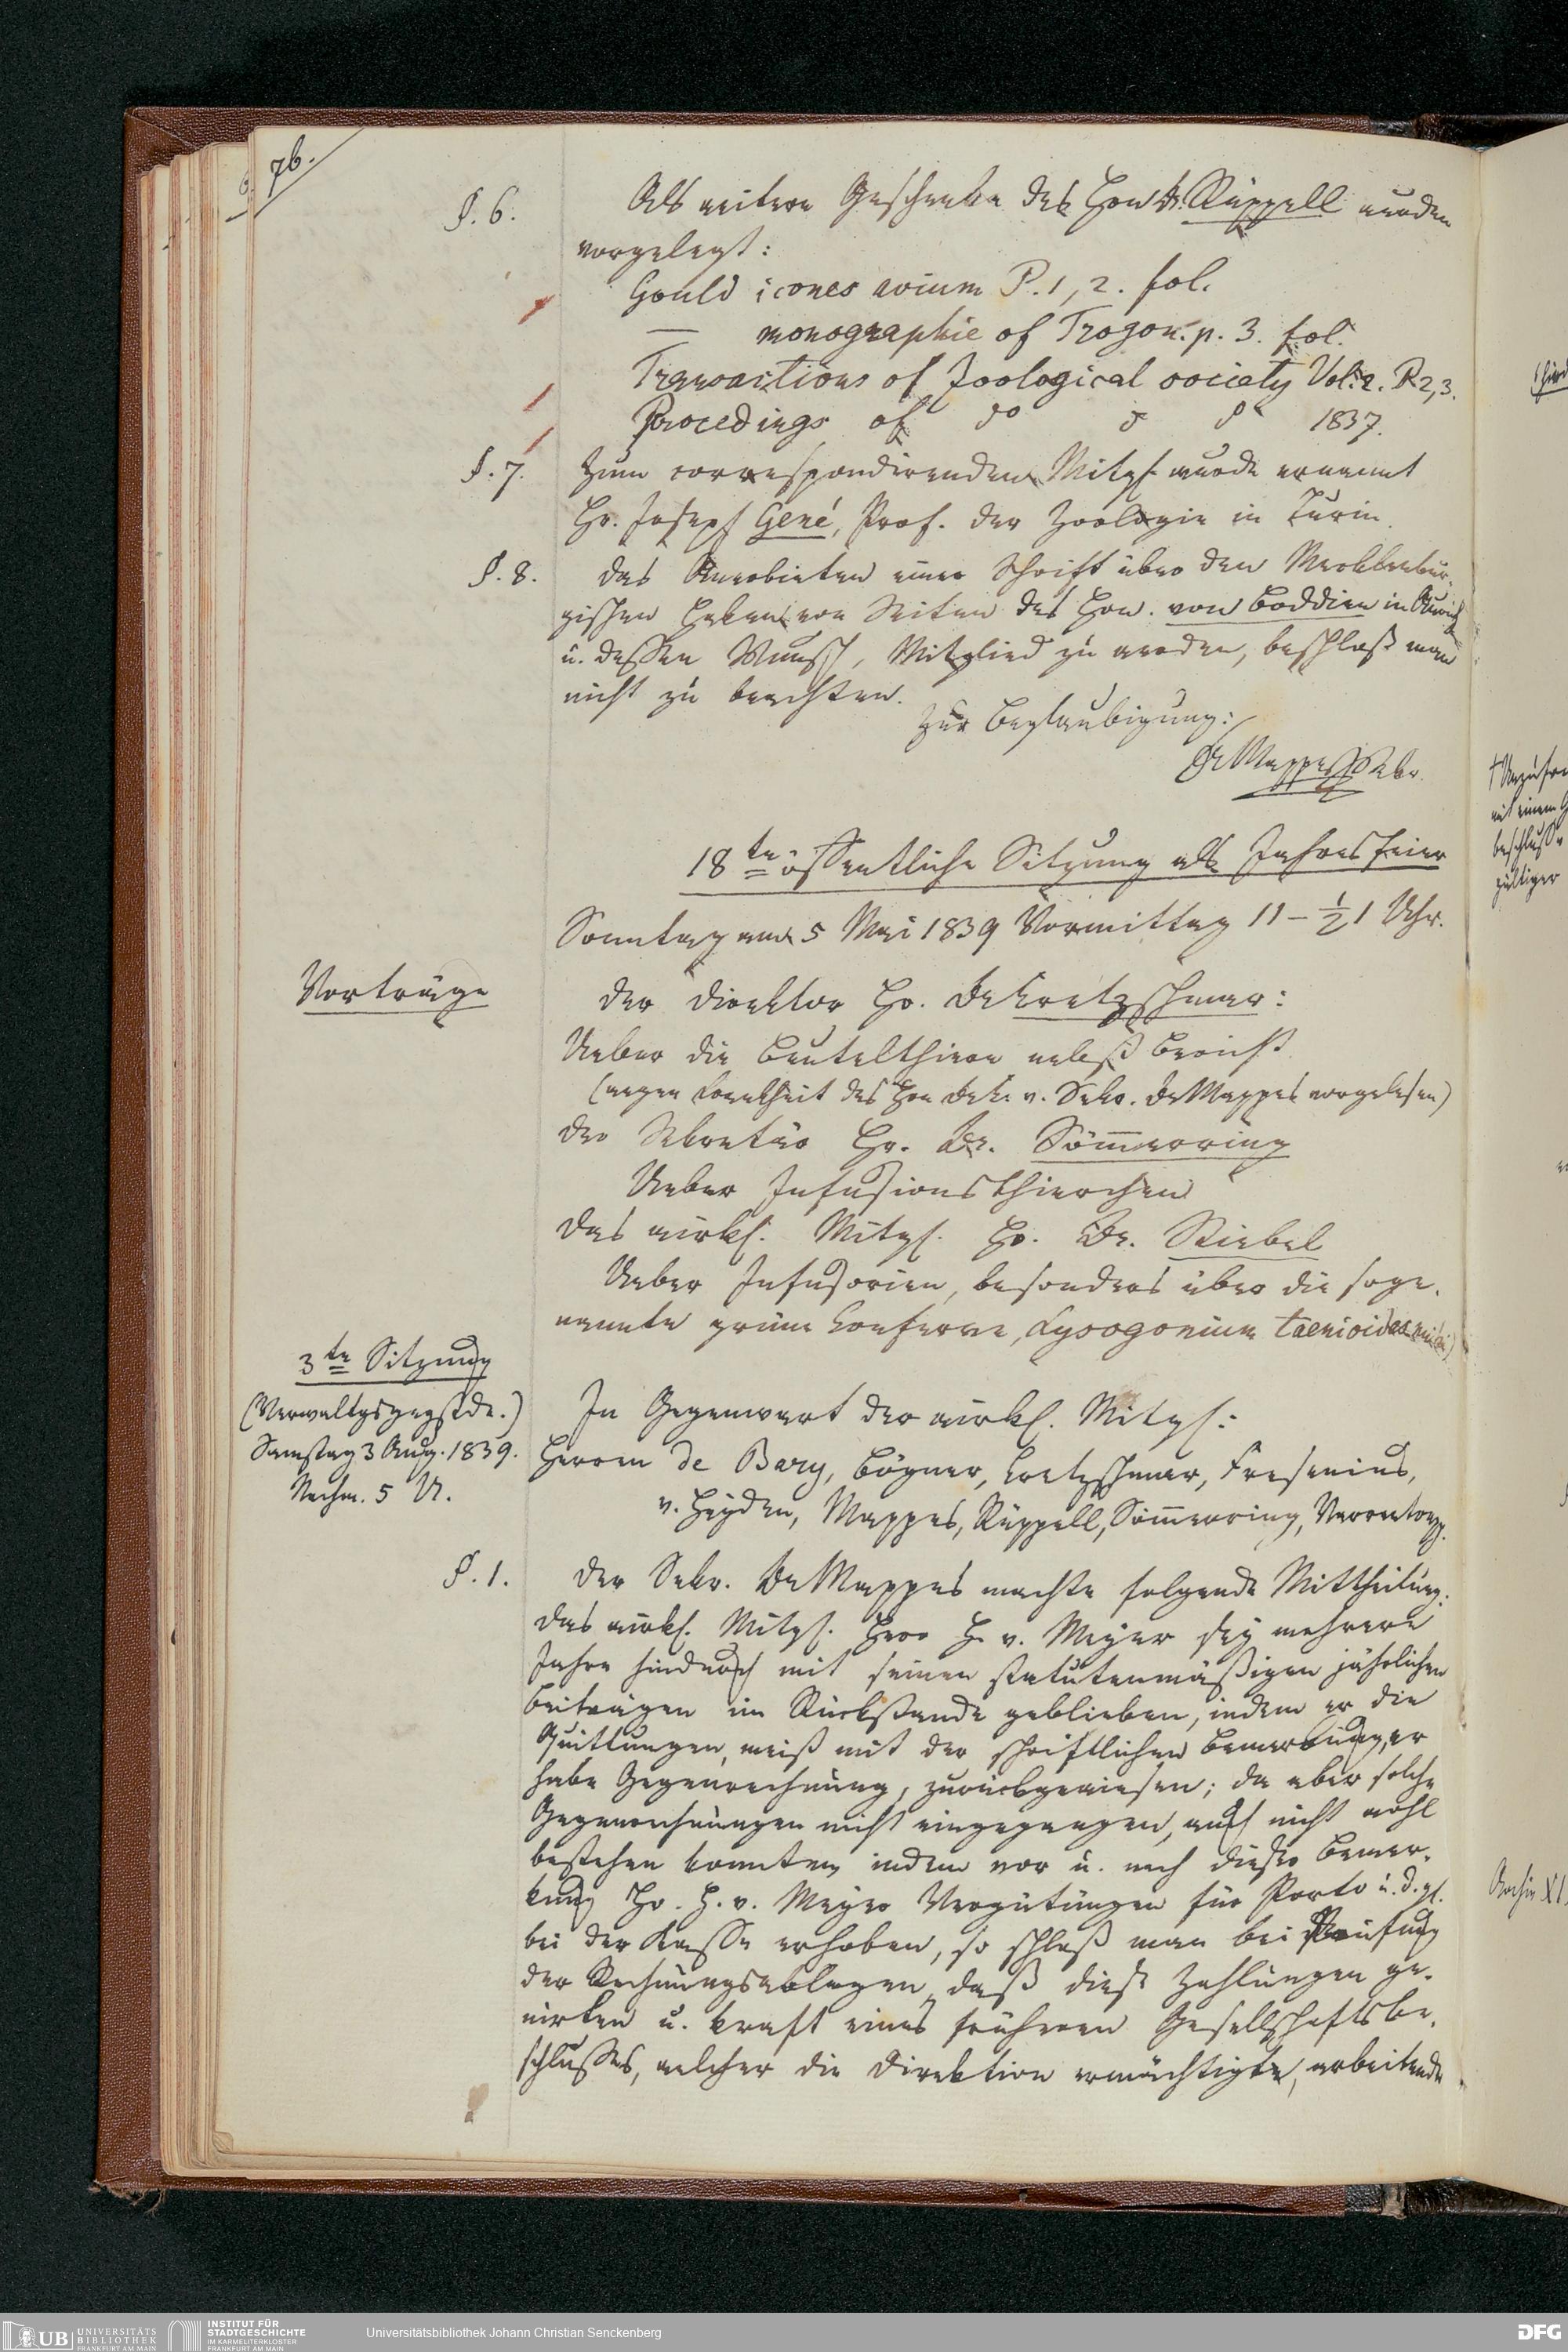 76.
§. 6.
Als weitere Geschenke des Hon Dr. Rüppell wurden
vorgelegt:
Gould icones avium P. 1, 2. fol.
— monographie of Trogon. p. 3. fol.
Transactions of Zoological society Vol. 2. P. 2, 3.
Procedings of do d d 1837.
§. 7.
Zum correspondirenden Mitgl. wurde ernannt
Hr. Joseph Gené, Prof. der Zoologie in Turin.
§. 8.
Das Anerbieten einer Schrift über den Mecklenbur-
gischen von Seiten des Hrn. von Boddien in Aurich
u. dessen Wunsch, Mitglied zu werden, beschloß man
nicht zu beachten.
Zur Beglaubigung:
Dr Mappes Sekr.
18te öffentliche Sitzung als Jahresfeier
Sonntag am 5 Mai 1839 Vormittag 11 – ½1 Uhr.
Vorträge
Der Direktor Hr. Dr Cretzschmar:
Ueber die Beutelthiere nebst Bericht
(wegen Krankheit des Hrn Dr Cr. v. Sekr. Dr Mappes vorgelesen)
Der Sekretär Hr. Dr. Sömmerring
Ueber Infusionsthierchen
Das wirkl. Mitgl. Hr. Dr. Stiebel
Ueber Infusorien, besonders über die soge-
nannte grüne Conferve, Lysogonium taenioides
3te Sitzung
(Verwaltgsgegstde.)
Samstag 3 Aug. 1839.
Nachm. 5 U.
In Gegenwart der wirkl. Mitgl:
Herren de Bary, Bögner, Cretzschmar, Fresenius,
v. Heyden, Mappes, Rüppell, Sömmerring, Varrentrapp.
§. 1.
Der Sekr. Dr Mappes machte folgende Mittheilung:
Das wirkl. Mitgl. Herr H. v. Meyer sey mehrere
Jahre hindurch mit seinen statutenmäßigen jährlichen
Beiträgen im Rückstande geblieben, indem er die
Quittungen, meist mit der schriftlichen Bemerkung, er
habe Gegenrechnung, zurückgewiesen; da aber solche
Gegenrechnungen nicht eingegangen, auch nicht wohl
bestehen konnten, indem vor u. nach dieser Bemer-
kung Hr. H. v. Meyer Vergütungen für Porto u. d. gl.
bei der Kasse erhoben, so schloß man bei Prüfung
der Rechnungsablagen, daß diese Zahlungen ge-
u. kraft eines früheren Gesellschaftsbe-
schlusses, welcher die Direktion ermächtigte, arbeitende
UB UNIVERSITÄTS BIBLIOTHEK FRANKFURT AM MAIN
INSTITUT FÜR STADTGESCHICHTE IM KARMELITERKLOSTER FRANKFURT AM MAIN
Universitätsbibliothek Johann Christian Senckenberg
DFG